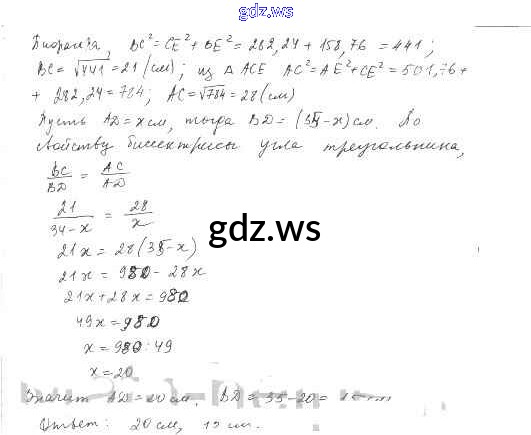 gdz.ws
Пифагора, BC² = CE² + BE² = 282,24 + 158,76 = 441;
BC = √441 = 21 (см); из △ ACE AC² = AE² + CE² = 501,76 +
+ 282,24 = 784; AC = √784 = 28 (см)
Пусть AD = x см, тогда BD = (35 - x) см. По
свойству биссектрисы угла треугольника,
BC/BD = AC/AD
21/34-x = 28/x
gdz.ws
21x = 28(35 - x)
21x = 980 - 28x
21x + 28x = 980
49x = 980
x = 980 : 49
x = 20
Значит AD = 20 см. BD = 35 - 20 =
Ответ: 20 см, 15 см.
gdz.ws